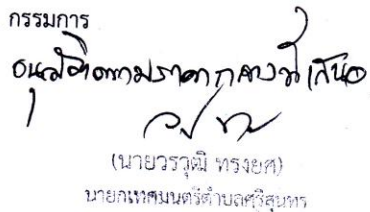 กรรมการ
อนุมัติตามราคากลางที่เสนอ
(นายวรวุฒิ ทรงยศ)
นายกเทศมนตรีตำบลศรีสุนทร